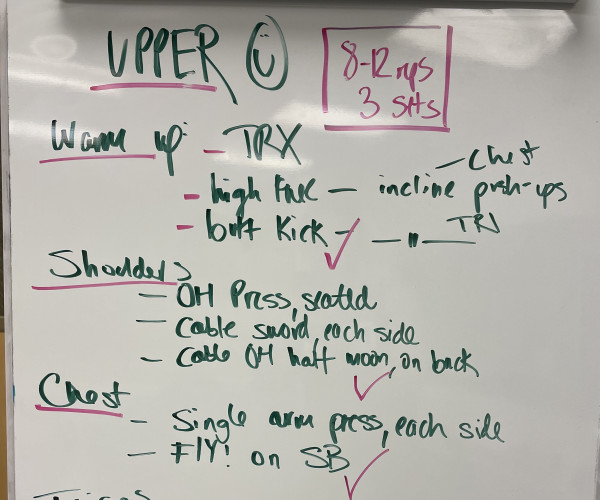 UPPER ☺
8-12 reps
3 sets
Warm up: - TRX
- high knee - incline push-ups - Chest
- butt kick - - " - TRI
Shoulders
- OH Press, seated
- Cable sword, each side
- Cable OH half moon, on back
Chest
- Single arm press, each side
- FLY! on SB